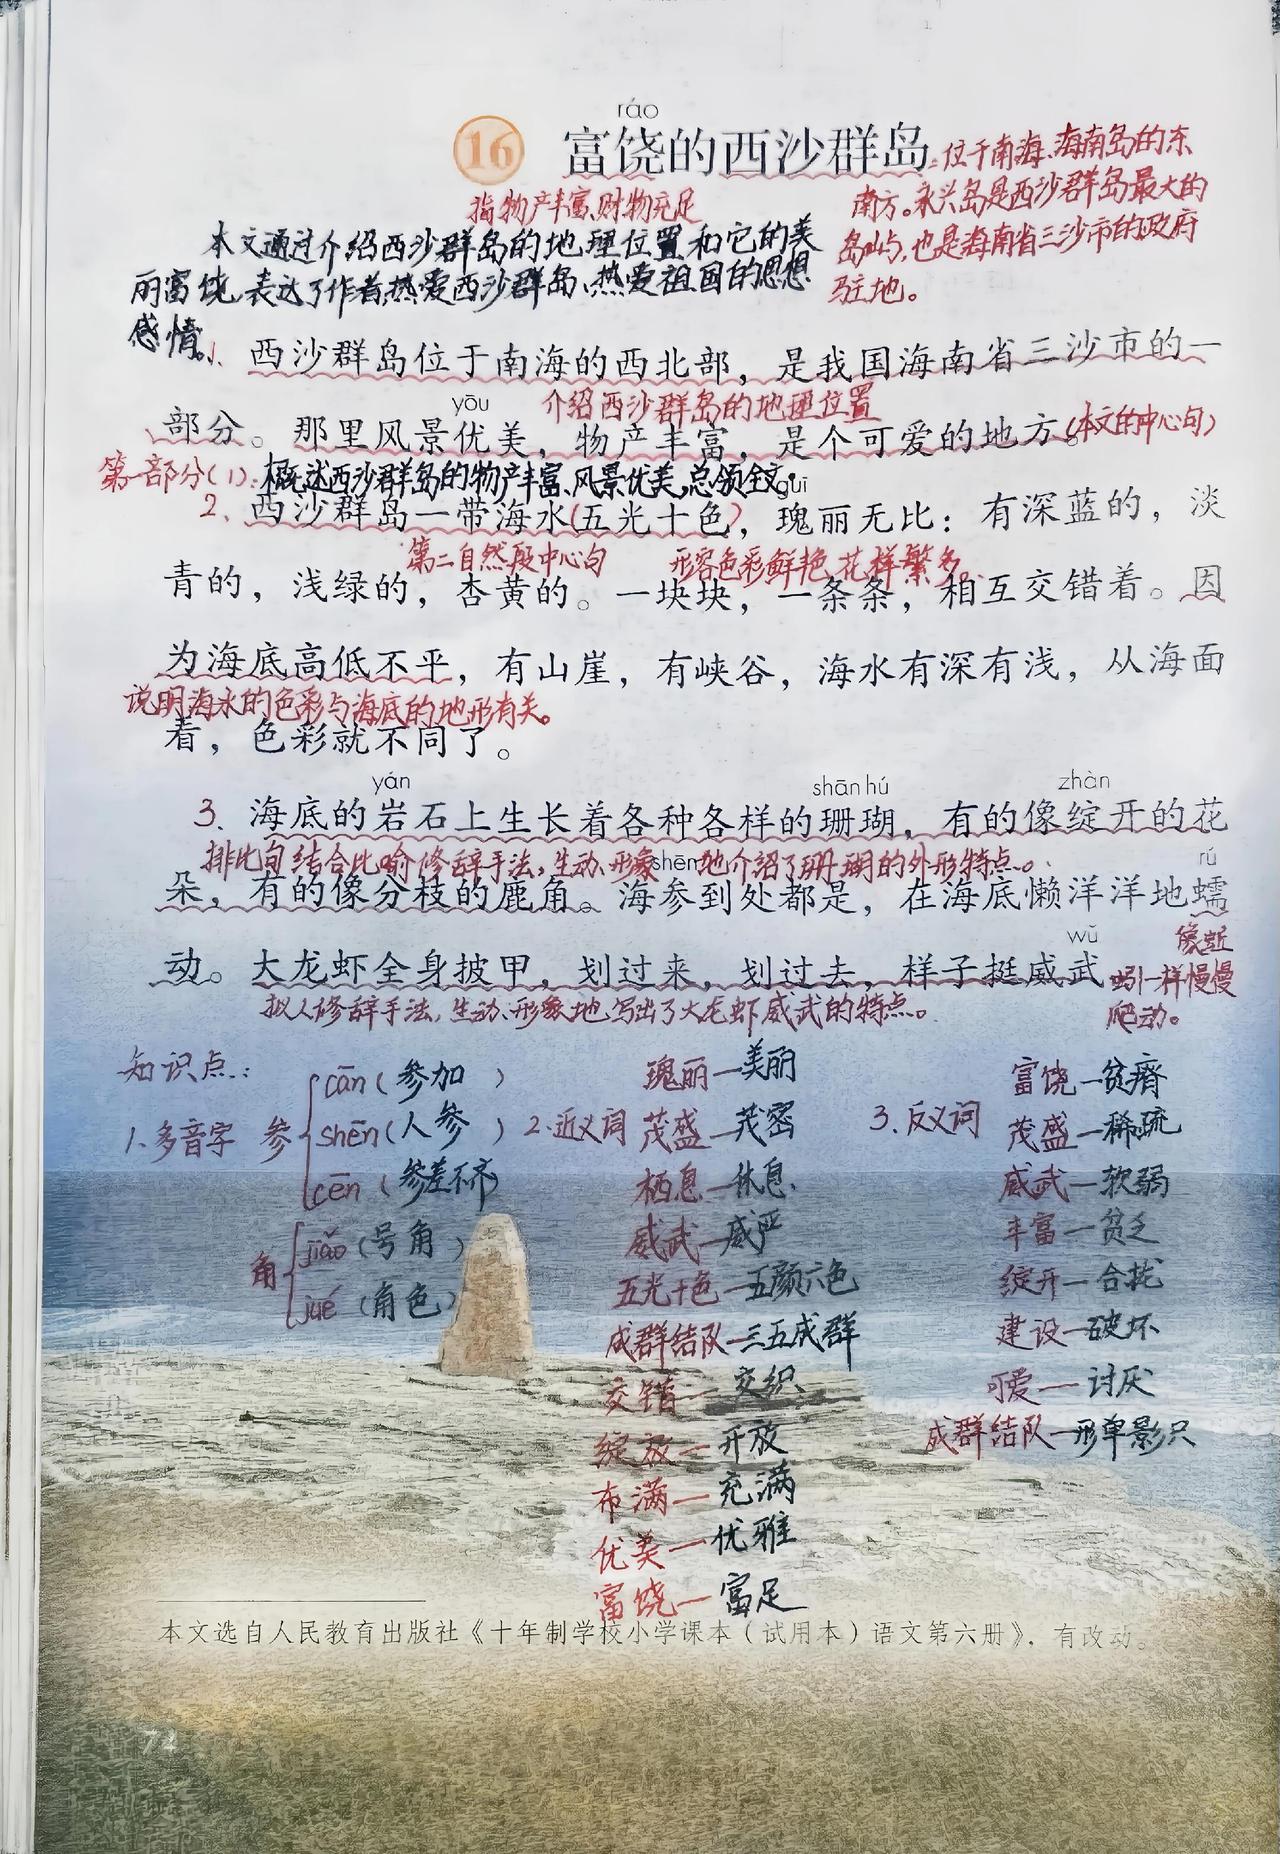 ráo
16 富饶的西沙群岛:位于南海、海南岛的东
指物产丰富、财物充足
南方。永兴岛是西沙群岛最大的
岛屿,也是海南省三沙市的政府
驻地。
本文通过介绍西沙群岛的地理位置和它的美
丽富饶,表达了作者热爱西沙群岛、热爱祖国的思想
感情。
1. 西沙群岛位于南海的西北部，是我国海南省三沙市的一
yōu
介绍西沙群岛的地理位置
部分。那里风景优美，物产丰富，是个可爱的地方。(本文的中心句)
第一部分(1):概述西沙群岛的物产丰富、风景优美,总领全文。
guī
2、西沙群岛一带海水(五光十色)，瑰丽无比：有深蓝的，淡
第二自然段中心句 形容色彩鲜艳,花样繁多。
青的，浅绿的，杏黄的。一块块，一条条，相互交错着。因
为海底高低不平，有山崖，有峡谷，海水有深有浅，从海面
说明海水的色彩与海底的地形有关。
看，色彩就不同了。
yán shān hú zhàn
3. 海底的岩石上生长着各种各样的珊瑚，有的像绽开的花
排比句结合比喻修辞手法,生动、形象地介绍了珊瑚的外形特点。
shēn rú
朵，有的像分枝的鹿角。海参到处都是，在海底懒洋洋地蠕
wǔ
像蚯
动。大龙虾全身披甲，划过来，划过去，样子挺威武。
蚓一样慢慢
爬动。
拟人修辞手法,生动、形象地写出了大龙虾威武的特点。
知识点:
1.多音字 参 cān(参加)
shēn(人参)
cēn(参差不齐)
角 jiǎo(号角)
jué(角色)
2.近义词
瑰丽—美丽
茂盛—茂密
栖息—休息
威武—威严
五光十色—五颜六色
成群结队—三五成群
交错—交织
绽放—开放
布满—充满
优美—优雅
富饶—富足
3.反义词
富饶—贫瘠
茂盛—稀疏
威武—软弱
丰富—贫乏
绽开—合拢
建设—破坏
可爱—讨厌
成群结队—形单影只
本文选自人民教育出版社《十年制学校小学课本（试用本）语文第六册》，有改动。
74